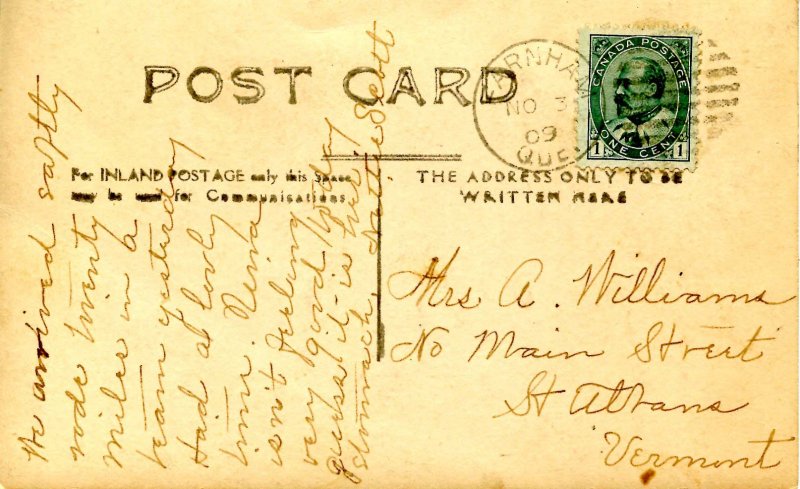 POST CARD
CANADA POSTAGE
ONE CENT
1 1
FARNHAM
NO 3
09
QUE.
For INLAND POSTAGE only this Space
may be used for Communications
THE ADDRESS ONLY TO BE
WRITTEN HERE
We arrived saftly
rode twenty
miles in a
team yesterday
Had a lovly
time. Nina
isn't feeling
very good today
guess it is her
stomach. Scott
Mrs A. Williams
No Main Street
St Albans
Vermont